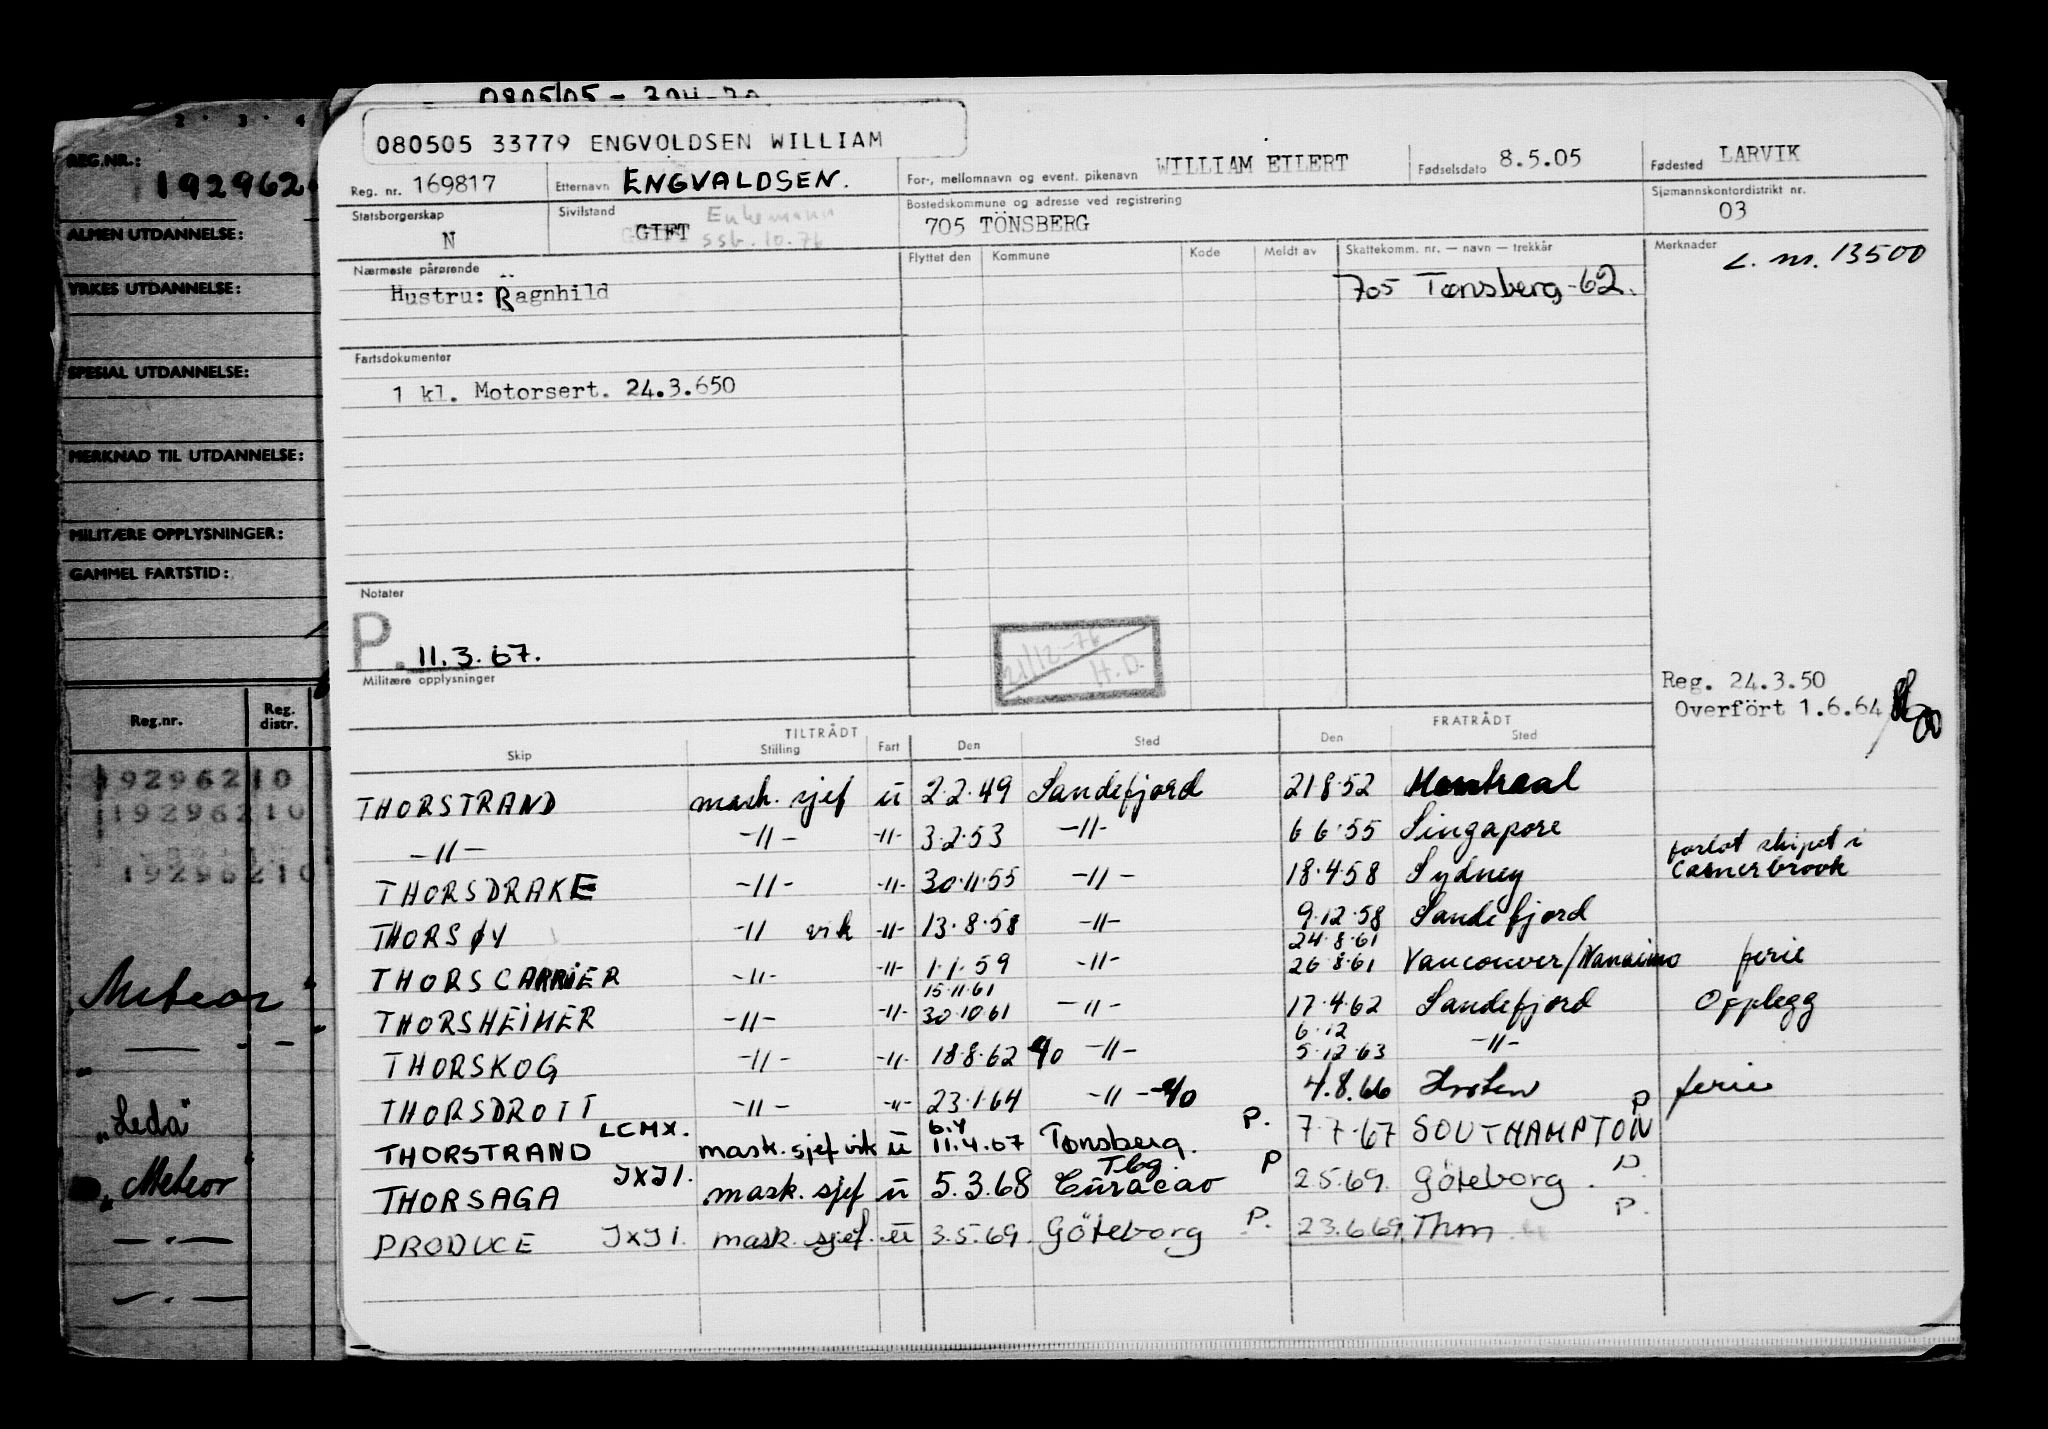 080505 33779 ENGVOLDSEN WILLIAM
Reg. nr. 169817 Etternavn ENGVALDSEN. For-, mellomnavn og event. pikenavn WILLIAM EILERT Fødselsdato 8.5.05 Fødested LARVIK
Statsborgerskap N Sivilstand GIFT Enkemann ssb. 10.76 Bostedskommune og adresse ved registrering 705 TÖNSBERG Sjømannskontordistrikt nr. 03
Nærmeste pårørende Flyttet den Kommune Kode Meldt av Skattekomm. nr. — navn — trekkår Merknader L. nr. 13500
Hustru: Ragnhild 705 Tønsberg -62.
Fartsdokumenter
1 kl. Motorsert. 24.3.650
Notater
P. 11.3.67.
21/12-76 H.D.
Militære opplysninger
Reg. 24.3.50
Overfört 1.6.64
TILTRÅDT FRATRÅDT
Skip Stilling Fart Den Sted Den Sted
THORSTRAND mask. sjef u 2.2.49 Sandefjord 21 8.52 Montreal
-"- -"- -"- 3.2.53 -"- 6 6.55 Singapore
THORSDRAKE -"- -"- 30.11.55 -"- 18.4.58 Sydney forlot skipet i Casnerbrook
THORSØY -"- vik -"- 13.8.58 -"- 9.12.58 Sandefjord
24.8.61
THORSCARRIER -"- -"- 1.1.59 -"- 26.8.61 Vancouver/Nanaimo ferie
15.11.61
THORSHEIMER -"- -"- 30.10.61 -"- 17.4.62 Sandefjord Opplegg
6.12
THORSKOG -"- -"- 18.8.62 -"- 5.12.63 -"-
THORSDROTT -"- -"- 23.1.64 -"- 4.8.66 Horten ferie
6.4
THORSTRAND LCMX. mask. sjef vik u 11.4.67 Tønsberg. P. 7.7.67 SOUTHAMPTON P
Tbg.
THORSAGA JXJI. mask. sjef u 5.3.68 Curacao P 2 5.69. Göteborg. P.
PRODUCE JXJI. mask. sjef. u 3.5.69. Göteborg P. 23.6.69. Thm P.
2 · 3 · 4
REG.NR.: 192962
ALMEN UTDANNELSE:
YRKES UTDANNELSE:
SPESIAL UTDANNELSE:
MERKNAD TIL UTDANNELSE:
MILITÆRE OPPLYSNINGER:
GAMMEL FARTSTID:
Reg.nr. Reg. distr.
19296210
19296210
19296210
Meteor
"Leda"
"Meteor